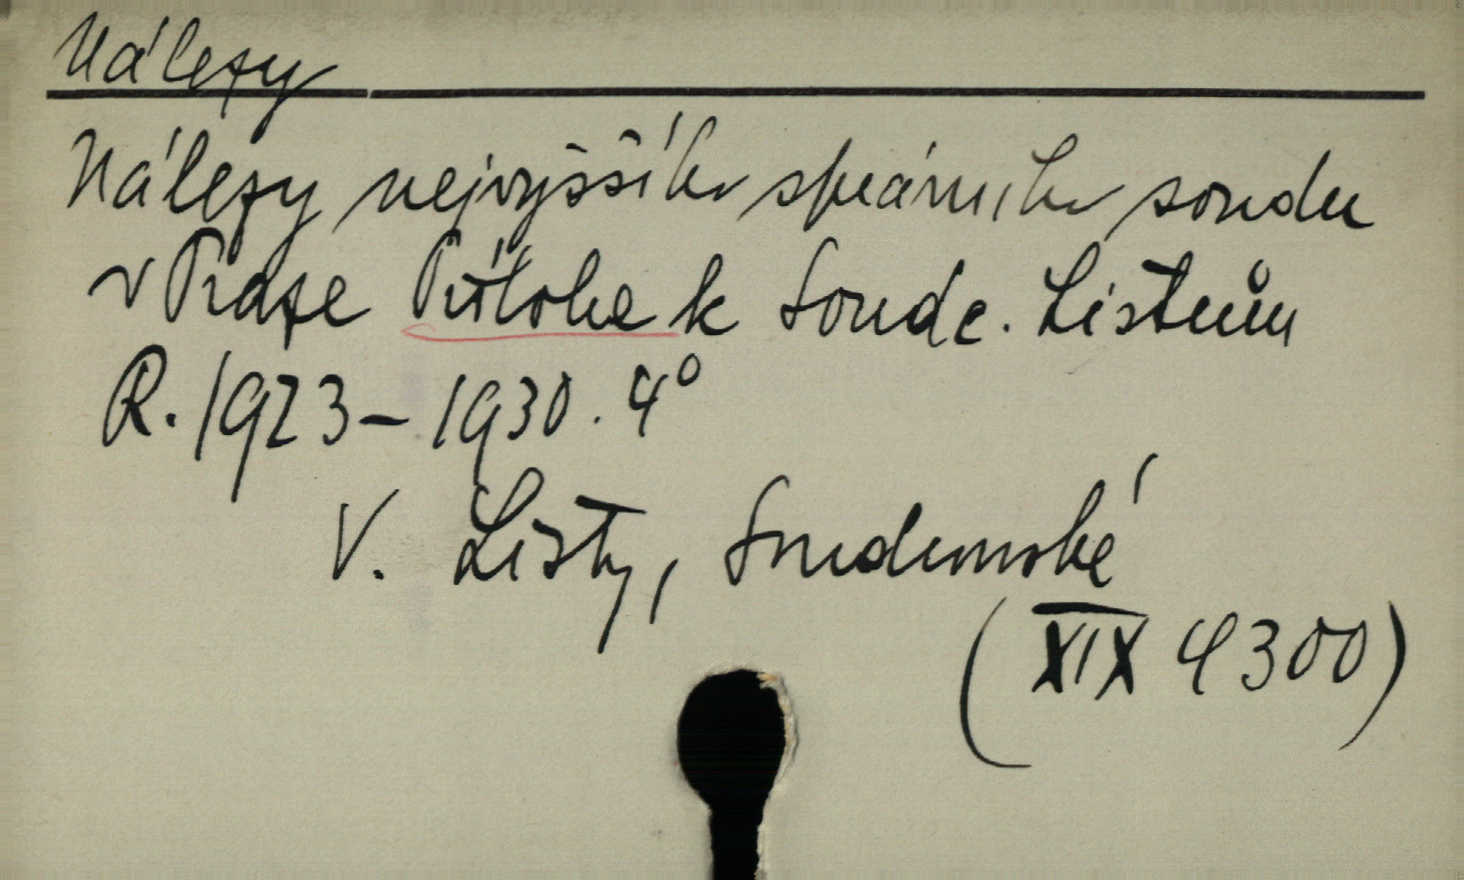 Nálezy
Nálezy nejvyššího správního soudu
v Praze Příloha k Soudc. Listům
R. 1923–1930. 4°
V. Listy, Soudcovské
(XIX 4300)